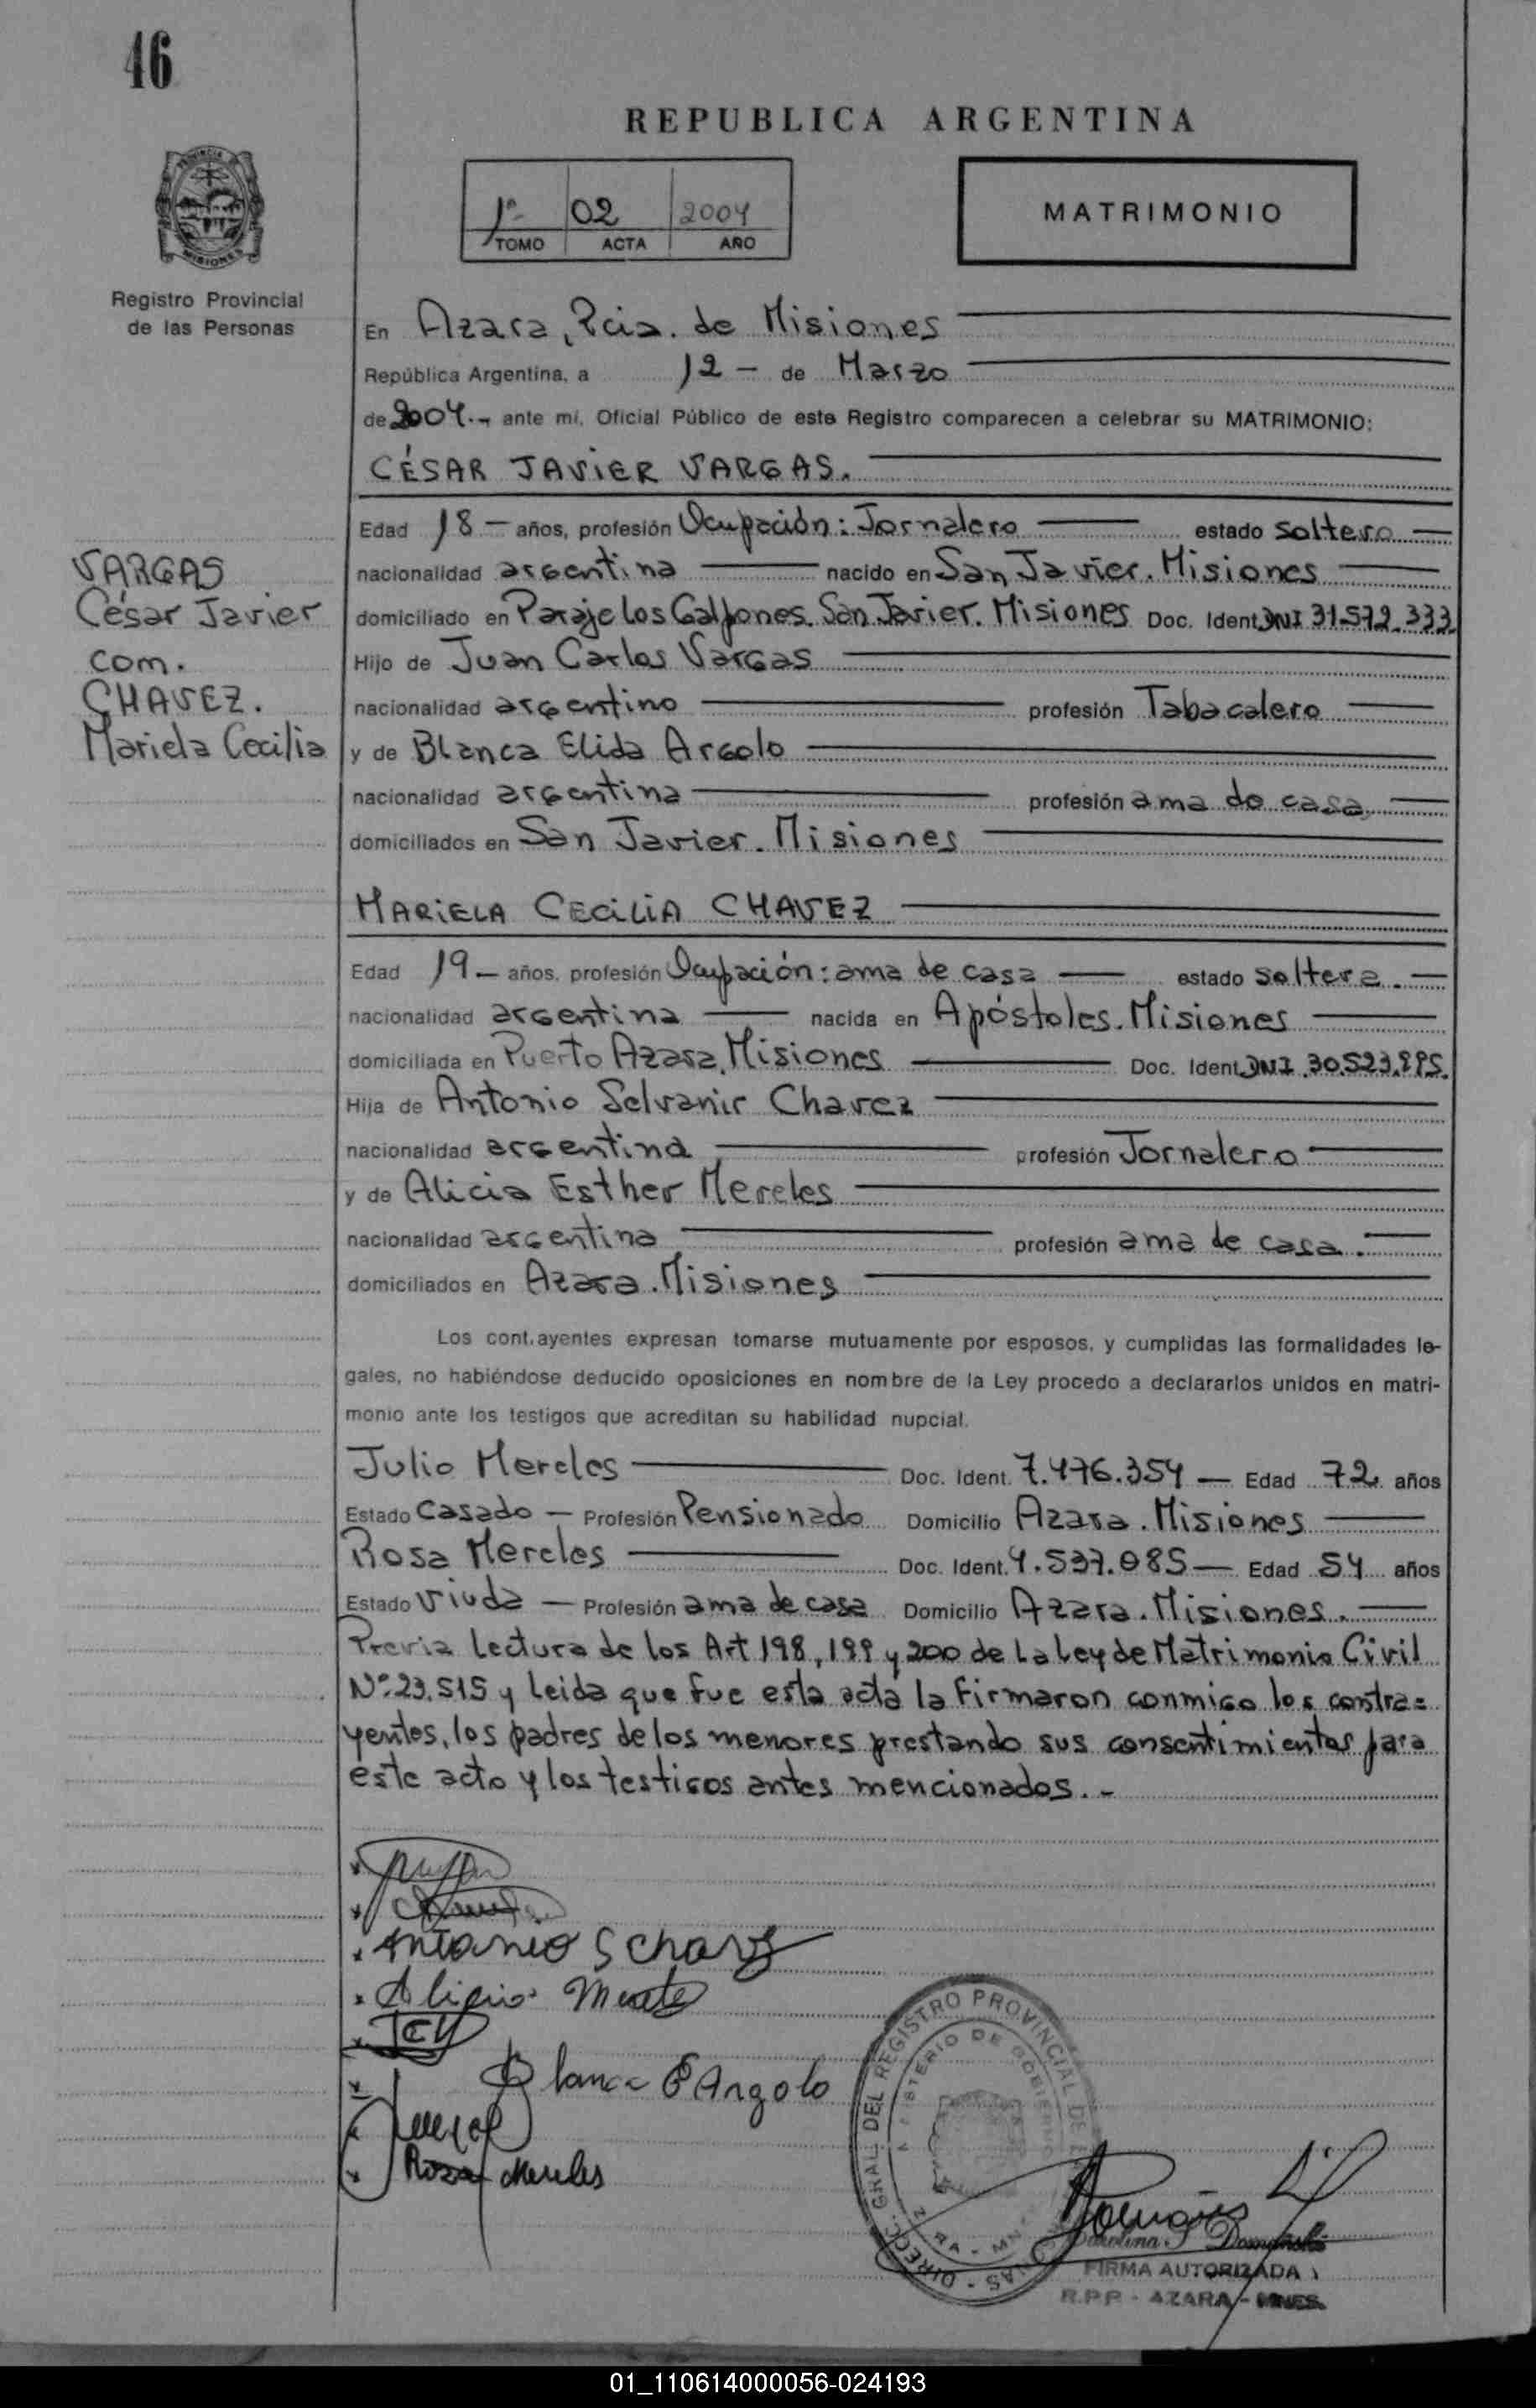 46
REPUBLICA ARGENTINA
1º 02 2004
TOMO ACTA AÑO
MATRIMONIO
PROVINCIA DE MISIONES
Registro Provincial
de las Personas
En Azara, Pcia. de Misiones
República Argentina, a 12 - de Marzo
de 2004.- ante mí, Oficial Público de este Registro comparecen a celebrar su MATRIMONIO:
CÉSAR JAVIER VARGAS.
Edad 18 - años, profesión Ocupación: Jornalero estado soltero
nacionalidad argentina nacido en San Javier. Misiones
domiciliado en Paraje Los Galpones. San Javier. Misiones Doc. Ident. DNI 31.572.333
Hijo de Juan Carlos Vargas
nacionalidad argentino profesión Tabacalero
y de Blanca Elida Argolo
nacionalidad argentina profesión ama de casa
domiciliados en San Javier. Misiones
VARGAS
César Javier
com.
CHAVEZ.
Mariela Cecilia
MARIELA CECILIA CHAVEZ
Edad 19 - años, profesión Ocupación: ama de casa estado soltera.
nacionalidad argentina nacida en Apóstoles. Misiones
domiciliada en Puerto Azara. Misiones Doc. Ident. DNI 30.523.895.
Hija de Antonio Selvanir Chavez
nacionalidad argentina profesión Jornalero
y de Alicia Esther Mereles
nacionalidad argentina profesión ama de casa.
domiciliados en Azara. Misiones
Los cont.ayentes expresan tomarse mutuamente por esposos, y cumplidas las formalidades le-
gales, no habiéndose deducido oposiciones en nombre de la Ley procedo a declararlos unidos en matri-
monio ante los testigos que acreditan su habilidad nupcial.
Julio Mereles Doc. Ident. 7.476.354 - Edad 72 años
Estado Casado - Profesión Pensionado Domicilio Azara. Misiones
Rosa Mereles Doc. Ident. 4.537.085 - Edad 54 años
Estado Viuda - Profesión ama de casa Domicilio Azara. Misiones.
Previa lectura de los Art 198, 199 y 200 de La Ley de Matrimonio Civil
Nº: 23.515 y leida que fue esta acta la firmaron conmigo los contra=
yentes, los padres de los menores prestando sus consentimientos para
este acto y los testigos antes mencionados.-
Antonio S Chavez
Alicia Merele
JCV
Blanca E Argolo
Rosa Mereles
DIRECC. GRAL. DEL REGISTRO PROVINCIAL DE
MINISTERIO DE GOBIERNO
Carolina Domanski
FIRMA AUTORIZADA
R.P.P. - AZARA - MNES.
01_110614000056-024193